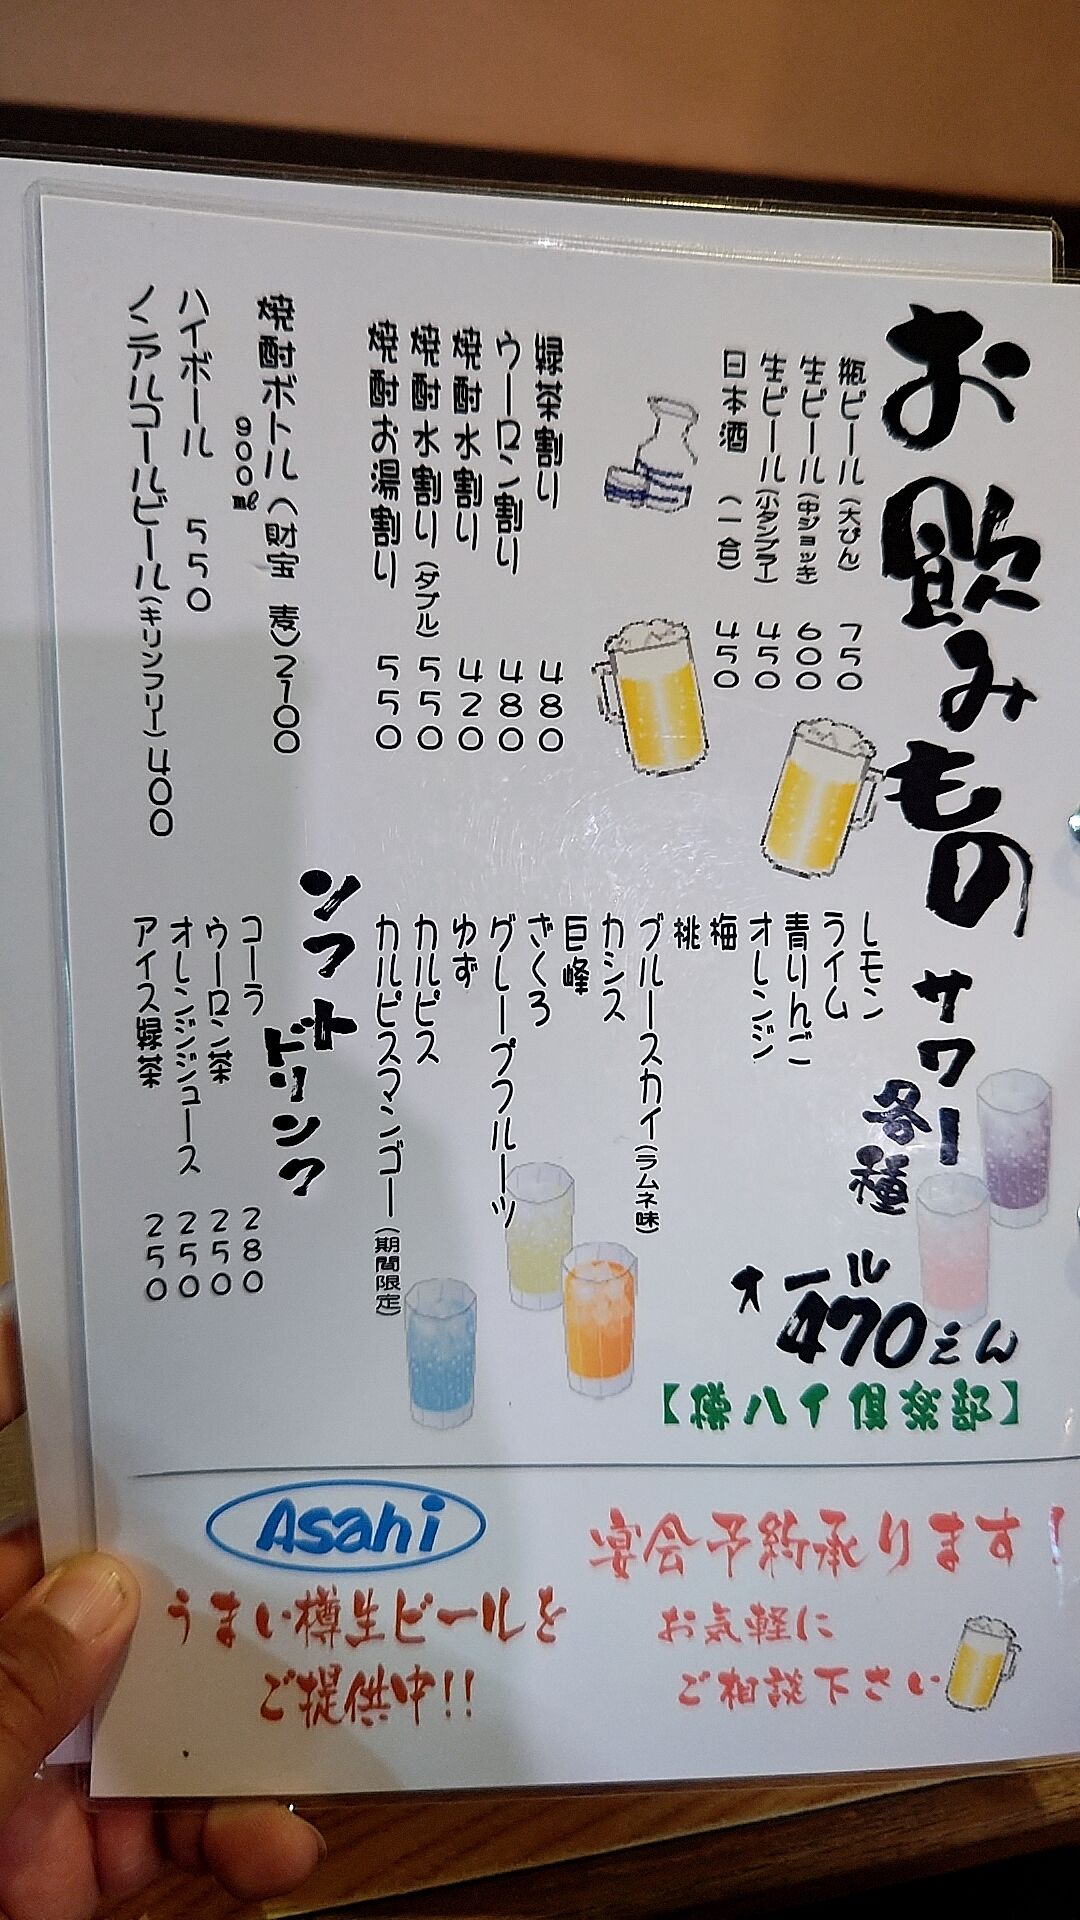 お飲みもの
瓶ビール(大びん) 750
生ビール(中ジョッキ) 600
生ビール(小タンブラー) 450
日本酒 (一合) 450
緑茶割り 480
ウーロン割り 480
焼酎水割り 420
焼酎水割り(ダブル) 550
焼酎お湯割り 550
焼酎ボトル(財宝 麦)2100
900㎖
ハイボール 550
ノンアルコールビール(キリンフリー)400
サワー
各種
オール
470えん
【樽ハイ倶楽部】
レモン
ライム
青りんご
オレンジ
梅
桃
ブルースカイ(ラムネ味)
カシス
巨峰
ざくろ
グレープフルーツ
ゆず
カルピス
カルピスマンゴー(期間限定)
ソフト
ドリンク
コーラ 280
ウーロン茶 250
オレンジジュース 250
アイス緑茶 250
宴会予約承ります!
お気軽に
ご相談下さい
Asahi
うまい樽生ビールを
ご提供中!!